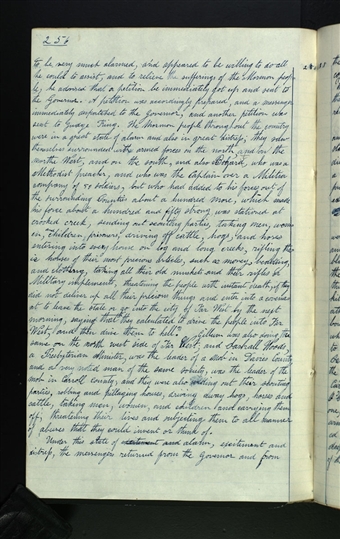 256
to be very much alarmed, and appeared to be willing to do all
he could to assist, and to relieve the sufferings of the Mormon peop-
le, he advised that a petition be immediately got up and sent to
the Governor. A petition was accordingly prepared, and a messenger
immediately dispatched to the Governor, and another petition was
sent to Judge King. The Mormon people throughout the country
were in a great state of alarm and also in great distress; they saw
themselves surrounded with armed forces on the north and on the
North West, and on the south, and also Bogard, who was a
Methodist preacher, and who was the Captain over a Militia
company of 50 soldiers, but who had added to his force out of
the surrounding Counties about a hundred more, which made
his force about a hundred and fifty strong was stationed at
crooked creek, sending out scouting parties, taking men, wom-
en, Children prisoners, driving off cattle, hogs, and horses
entering into every house on Log and Long creeks, rifling the-
ir houses of their most precious articles, such as money, bedding,
and clothing, taking all their old muskets and their rifles or
Military implements, threatening the people with instant death, if they
did not deliver up all their precious things and enter into a covenan
at to leave the state or go into the city of Far West by the next
morning, saying that they calculated to drive the people into Far
West, and then drive them to Hell. Gillium was also doing the
same on the north west side of Far West, and Sashiel Woods,
a Presbyterian Minister, was the leader of a mob in Davies County
and a very noted man of the same society, was the leader of the
mob in Carroll county, and they were also sending out their scouting
parties, robing and pillaging houses, driving away hogs, horses and
cattle, taking men, women, and children and carrying them
off, threatening their lives and subjecting them to all manner
of abuses that they could invent or think of.
Under this state of alarm, excitement and
distress, the messengers returned from the Governor and from